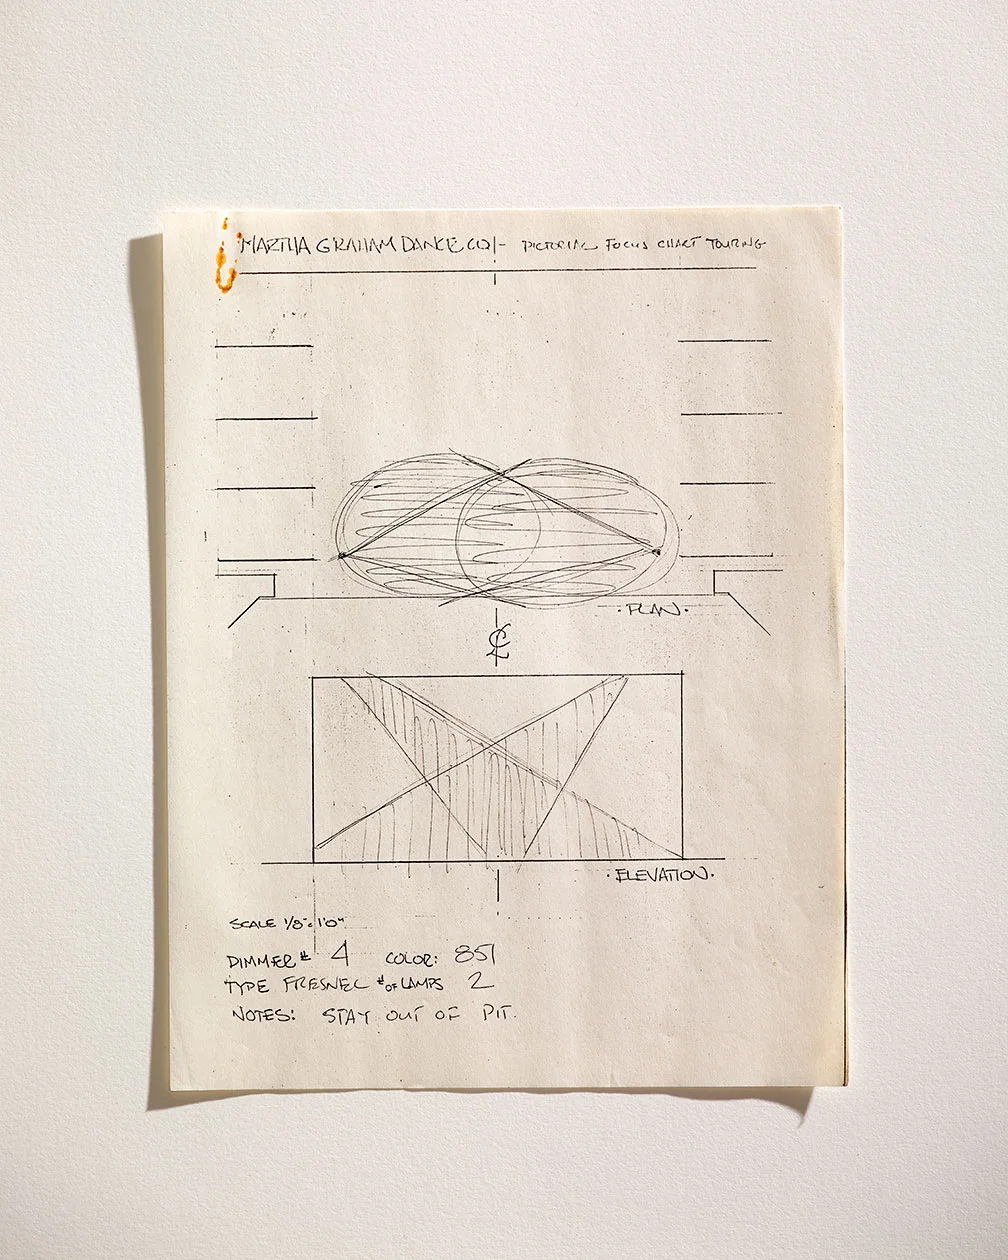 MARTHA GRAHAM DANCE CO. - PICTORIAL FOCUS CHART TOURING
· PLAN ·
℄
· ELEVATION ·
SCALE 1/8" = 1'0"
DIMMER # 4 COLOR: 851
TYPE FRESNEL # OF LAMPS 2
NOTES: STAY OUT OF PIT.